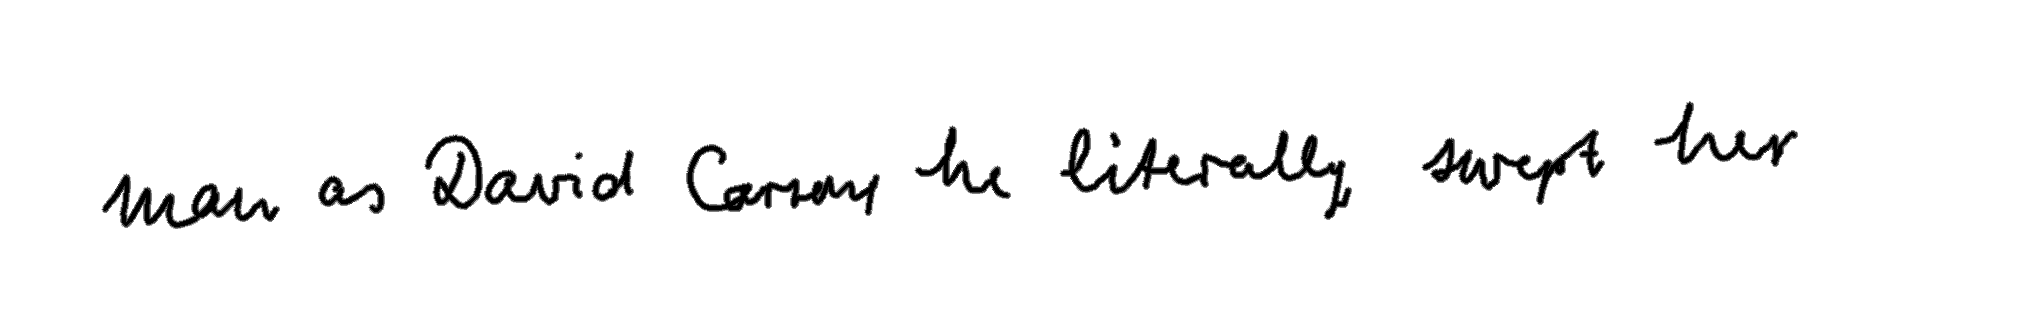 man as David Carson, he literally swept her